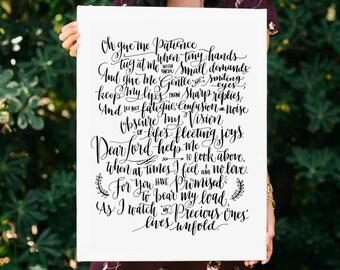 Oh give me Patience
when tiny hands
tug at me with their ponderous small demands
And give me Gentle and Smiling eyes
keep my lips from sharp replies,
And let not fatigue, Confusion or noise
Obscure my Vision
of life's fleeting joys.
Dear Lord help me to look above,
When at times I feel I have no love.
For you have Promised
to bear my load,
As I watch my Precious Ones'
lives unfold.